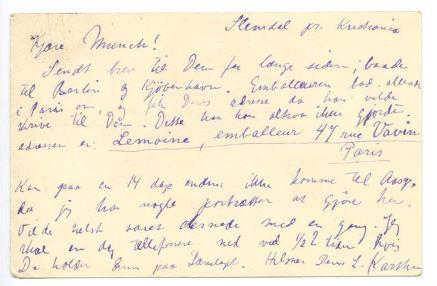 Slemdal pr. Kristiania
Kjære Munch!
Sendt brev til Dem for længe siden, baade
til Berlin og Kjøbenhavn. Emballeuren bad
i Paris om, og fik Deres adresse da han vilde
skrive til Dem. Dette har han altsaa ikke gjort.
adressen er: Lemoine, emballeur 47 rue Vavin
Paris
Kan paa en 14 dage endnu ikke komme til Aasg.
da jeg har nogle portrætter at gjøre her.
Vilde helst været dernede med en gang. Jeg
skal en dag telefonere ned ved 1/2 2 tiden hvis
De holder Dem paa Landet. Hilsner Deres L. Karsten